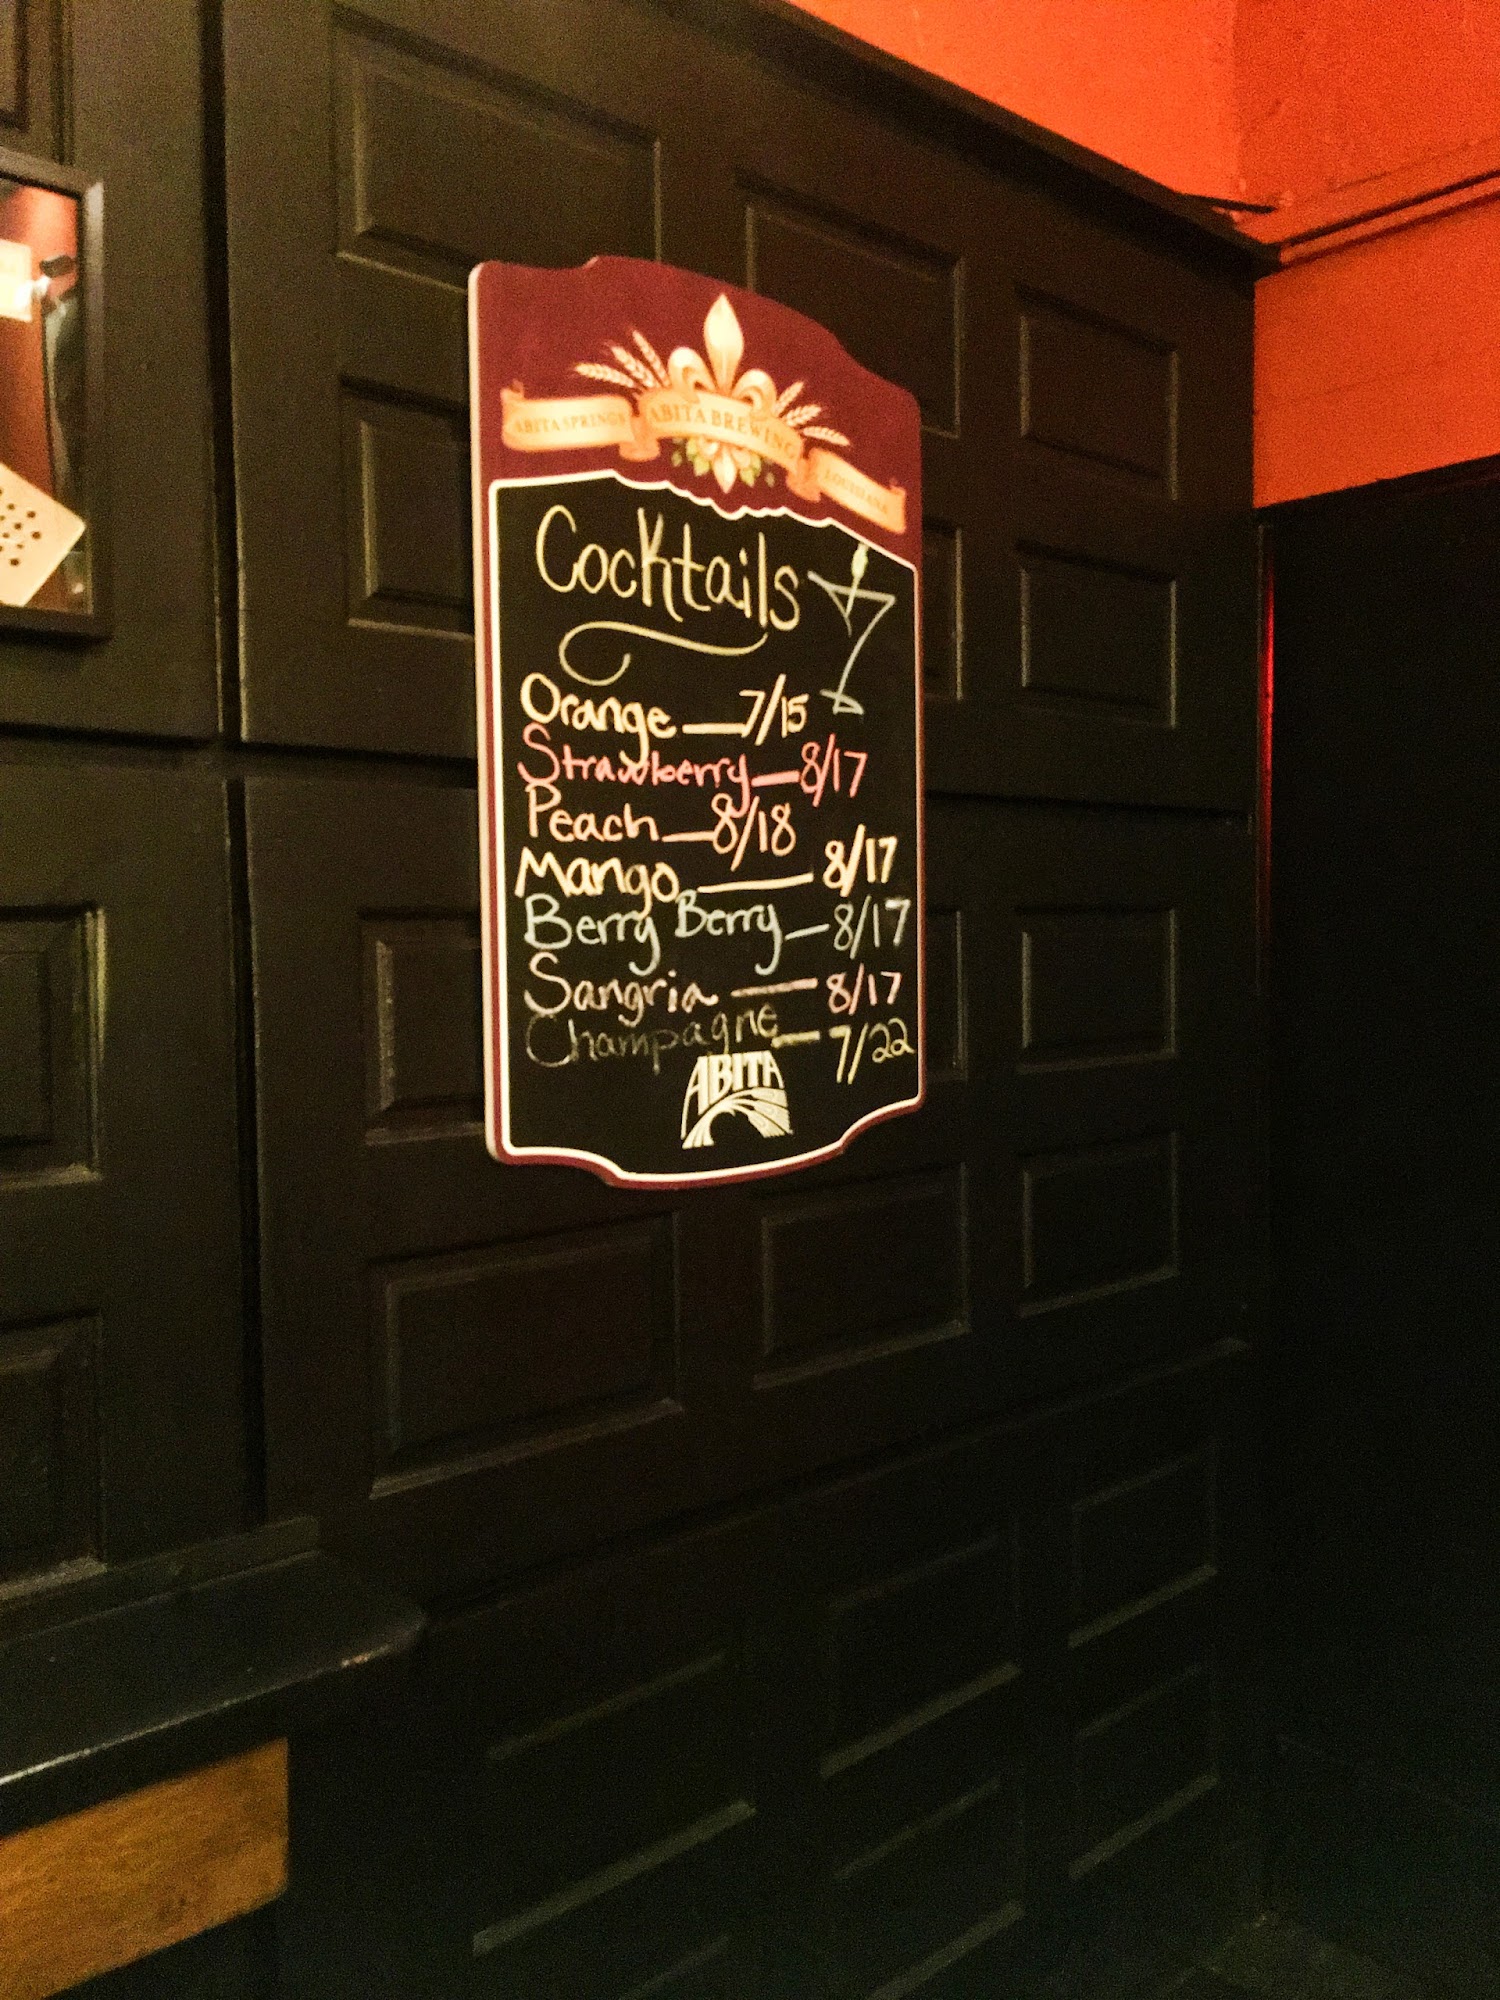 ABITA SPRINGS ABITA BREWING LOUISIANA
Cocktails
Orange — 7/15
Strawberry — 8/17
Peach — 8/18
Mango — 8/17
Berry Berry — 8/17
Sangria — 8/17
Champagne — 7/22
ABITA